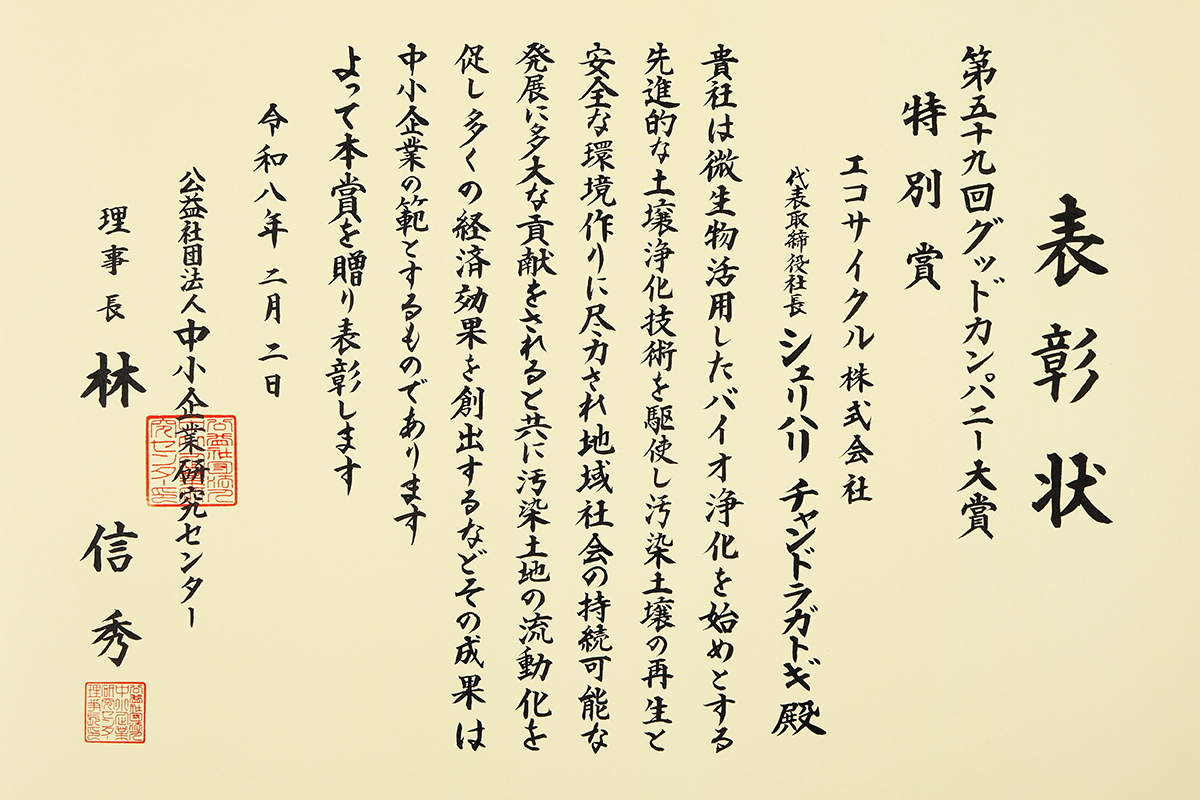 表彰状
第五十九回グッドカンパニー大賞
特別賞
エコサイクル株式会社
代表取締役社長 シュリハリ チャンドラガトギ 殿
貴社は微生物活用したバイオ浄化を始めとする
先進的な土壌浄化技術を駆使し汚染土壌の再生と
安全な環境作りに尽力され地域社会の持続可能な
発展に多大な貢献をされると共に汚染土地の流動化を
促し多くの経済効果を創出するなどその成果は
中小企業の範とするものであります
よって本賞を贈り表彰します
令和八年二月二日
公益社団法人中小企業研究センター
理事長 林 信秀